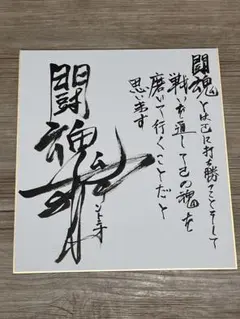 闘魂とは己に打ち勝つことそして
戦いを通して己の魂を
磨いて行くことだと
思います
闘魂